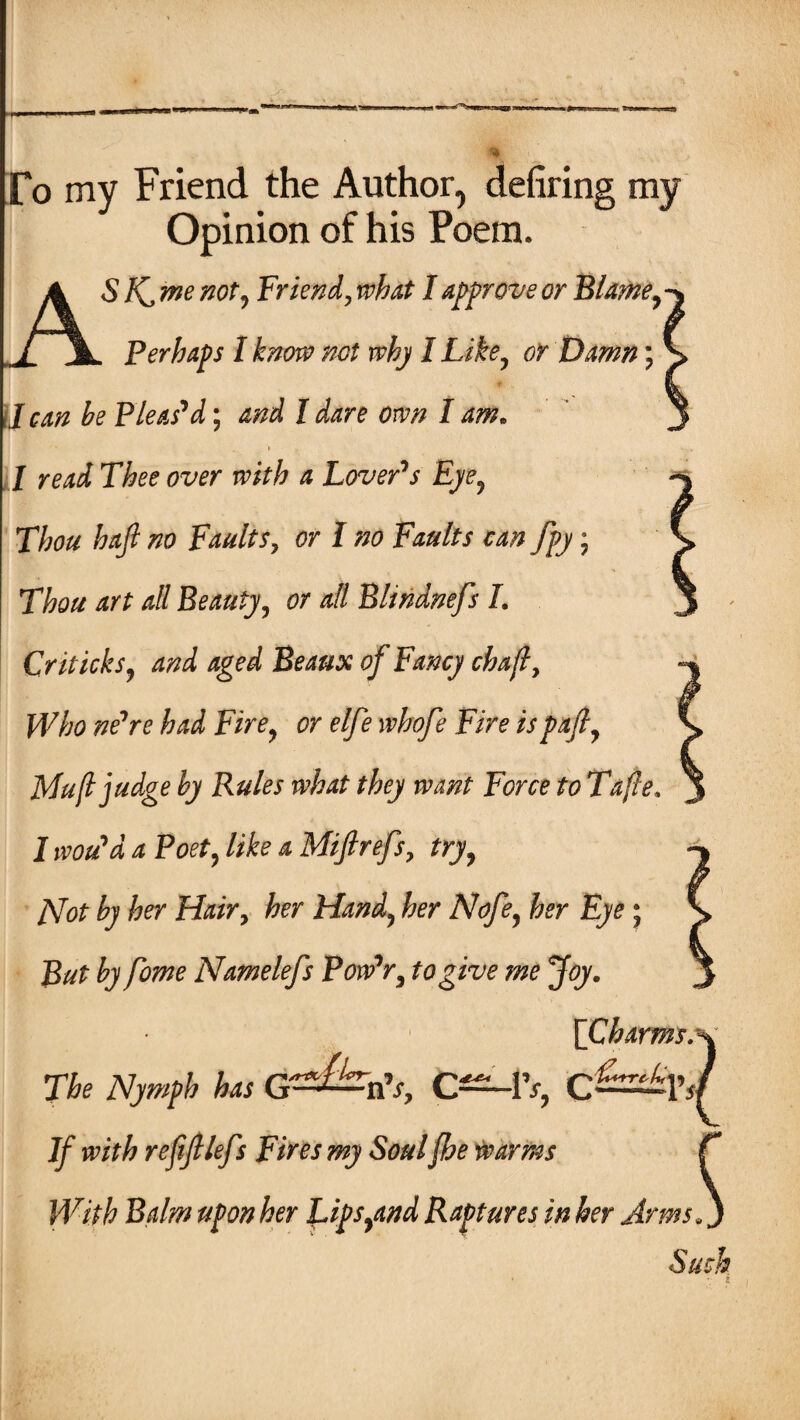 To my Friend the Author, deſiring my
Opinion of his Poem.
ASK me not, Friend, what I approve or Blame,
Perhaps I know not why I Like, or Damn;
I can be Pleas'd; and I dare own I am.
I read Thee over with a Lover's Eye,
Thou haſt no Faults, or I no Faults can ſpy;
Thou art all Beauty, or all Blindneſs I.
Criticks, and aged Beaux of Fancy chaſt,
Who ne're had Fire, or elſe whoſe Fire is paſt,
Muſt judge by Rules what they want Force to Taſte.
I wou'd a Poet, like a Miſtreſs, try,
Not by her Hair, her Hand, her Noſe, her Eye;
But by ſome Nameleſs Pow'r, to give me Joy.
[Charms.
The Nymph has G——n's, C——l's, C——l's
If with reſiſtleſs Fires my Soul ſhe warms
With Balm upon her Lips, and Raptures in her Arms.
Such